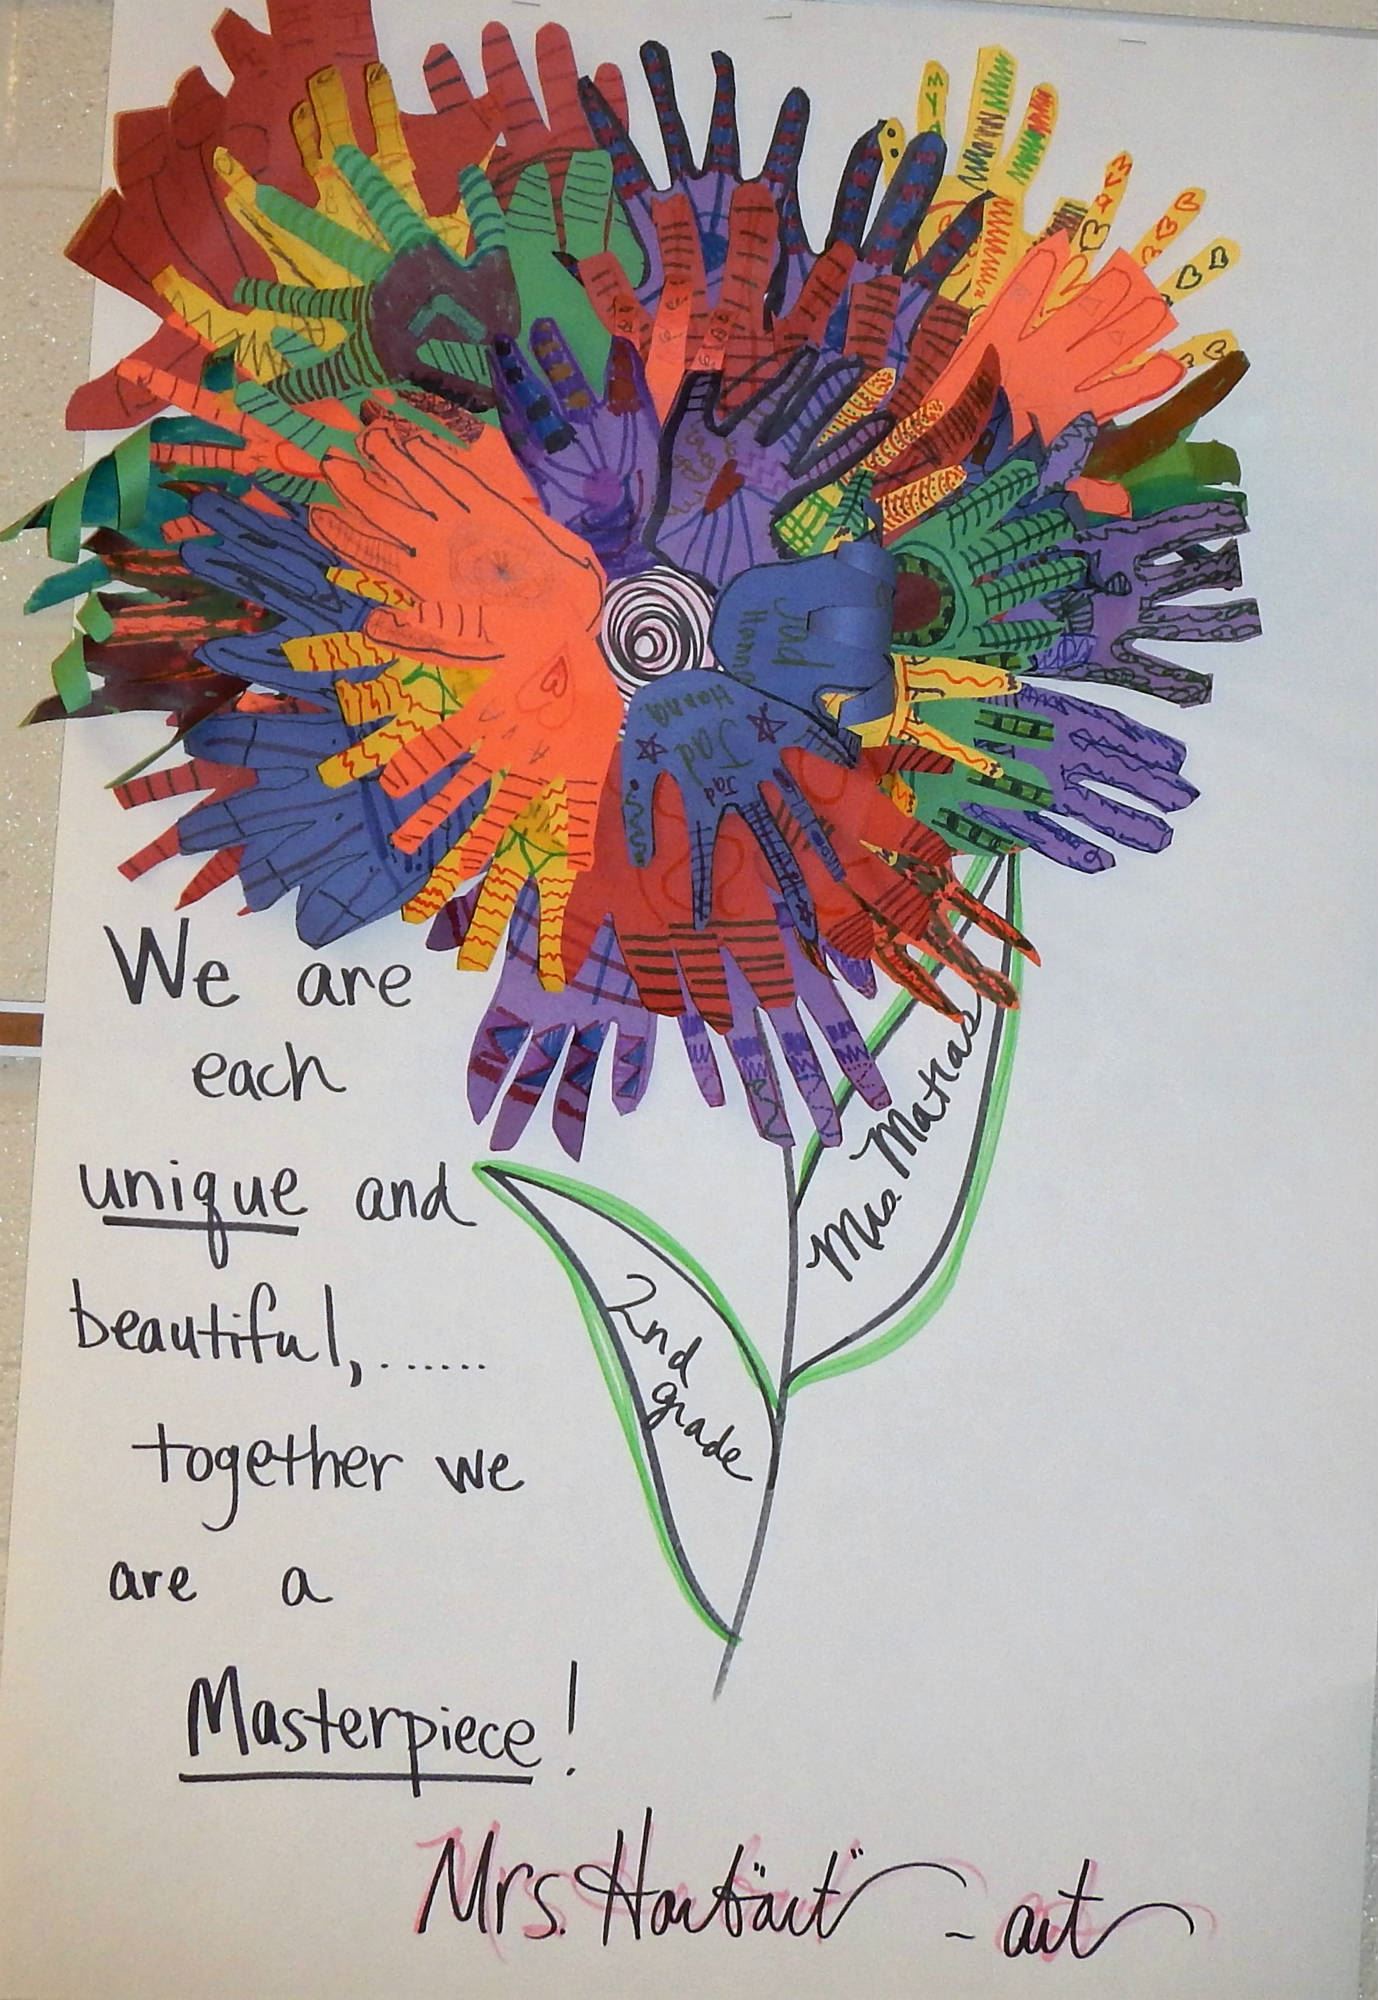 Jad
Hanna
Hanna
Jad
Jad
We are
each
unique and
beautiful,......
together we
are a
Masterpiece!
Mrs. Matras
2nd
grade
Mrs. Harb"art" - art